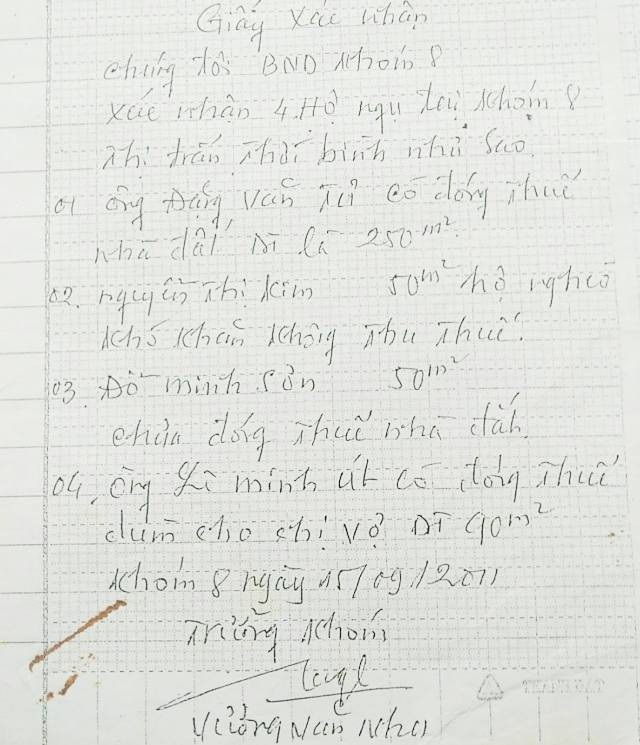 Giấy xác nhận
chúng tôi BND Khóm 8
xác nhận 4 Hộ ngụ tại Khóm 8
Thị trấn Thới bình như sao.
01 ông Đặng Văn Tư có đóng Thuế
nhà đất, DT là 250m².
02. nguyễn Thị Kim 50m² hộ nghèo
khó khăn không Thu Thuế.
03. Đỗ minh Sơn 50m²
chưa đóng Thuế nhà đất.
04. ông Lê minh út có đóng Thuế
dùm cho chị vợ DT 90m²
Khóm 8 ngày 15/09/2011
Trưởng Khóm
Vương Văn Nhơ